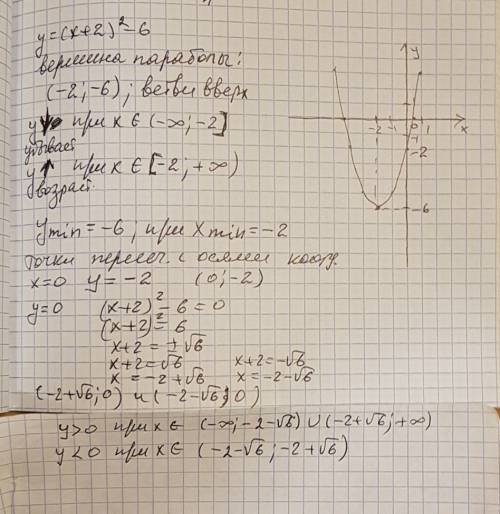 y=(x+2)²-6
вершина параболы:
(-2;-6); ветви вверх
y↓ при x∈(-∞;-2]
убывает
y↑ при x∈[-2;+∞)
возраст.
ymin=-6; при xmin=-2
точки пересеч. с осями коорд.
x=0 y=-2 (0;-2)
y=0 (x+2)²-6=0
(x+2)²=6
x+2=±√6
x+2=√6 x+2=-√6
x=-2+√6 x=-2-√6
(-2+√6;0) и (-2-√6;0)
y>0 при x∈ (-∞;-2-√6)∪(-2+√6;+∞)
y<0 при x∈ (-2-√6;-2+√6)
y
-2 -1 0 1 x
-1
-2
-6